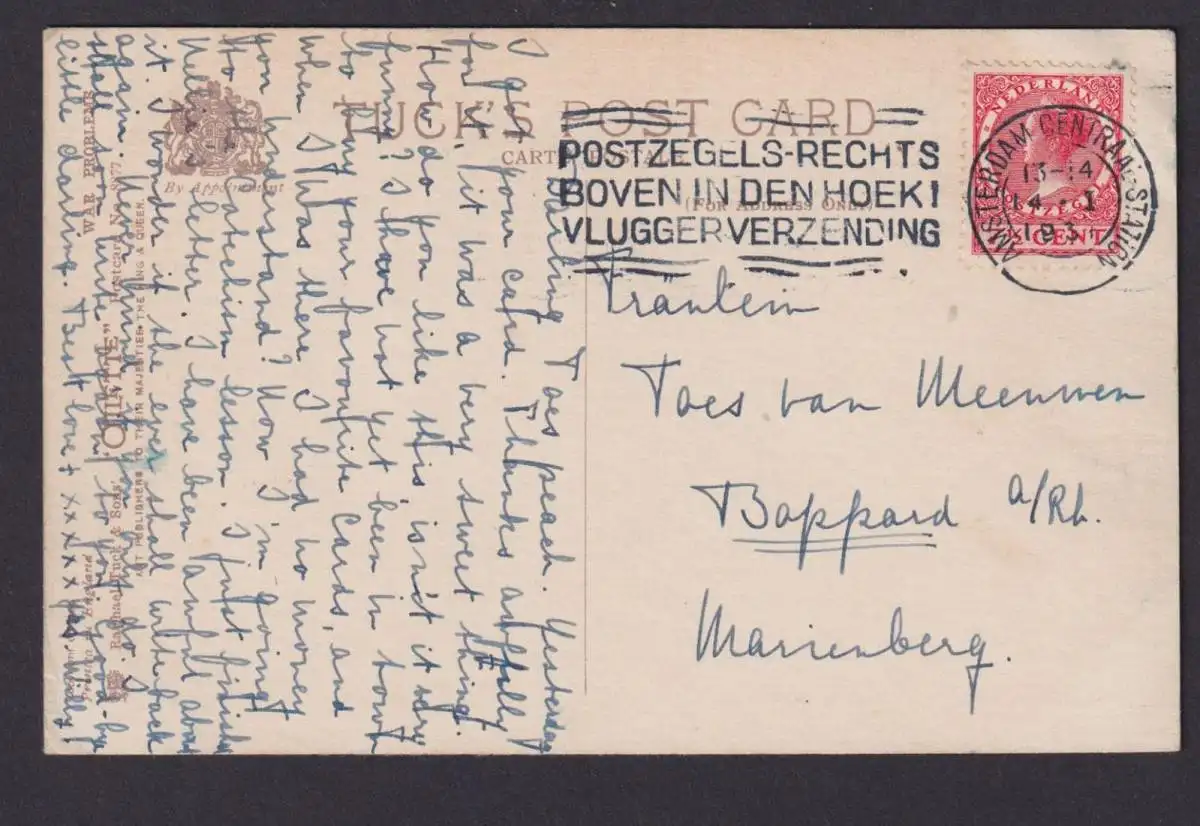 TUCK'S POST CARD
CARTE POSTALE
(FOR ADDRESS ONLY)
By Appointment
POSTZEGELS-RECHTS
BOVEN IN DEN HOEK!
VLUGGER VERZENDING
AMSTERDAM CENTRAAL STATION
13-14
14
193
NEDERLAND
CENT
Fräulein
Toes van Meeuwen
Boppard a/Rh.
Marienberg.
Darling Toes peach. Yesterday
I got your card. Thanks awfully
for it, it was a very sweet thing.
How do you like this, isn't it
funny? I have not yet been in town
to buy your favourite cards, and
when I was there I had no money
you understand? Now I'm going
to the catechism lesson. I just
letter. I have been awful about
it. I wonder if she ever shall write back
again. Never mind
shall soon write again to you, good-bye
little darling. Best love + x x x x x Willy
WAR PROBLEMS
"OILETTE" Postcard No. 8877.
ART PUBLISHERS TO THEIR MAJESTIES THE KING & QUEEN.
Raphael Tuck & Sons'
Printed in England